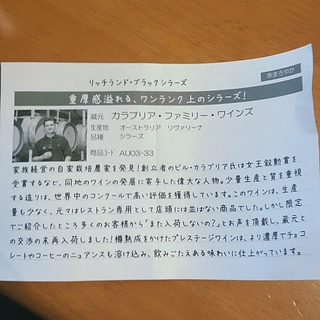 リッチランド・ブラックシラーズ
赤まろやか
重厚感溢れる、ワンランク上のシラーズ!
蔵元 カラブリア・ファミリー・ワインズ
生産地 オーストラリア リヴァリーナ
品種 シラーズ
商品コード AU03-33
家族経営の自家栽培農家を発見!創立者のビル・カラブリア氏は女王叙勲賞を
受賞するなど、同地のワインの発展に寄与した偉大な人物。少量生産と質を重視
する造りは、世界中のコンクールで高い評価を獲得しています。このワインは、生産
量も少なく、元々はレストラン専用として店頭には並ばない商品でした。しかし限定
でご紹介したところ多くのお客様から"また入荷しないの?"とお声を頂戴し、蔵元と
の交渉の末再入荷しました!樽熟成をかけたプレステージワインは、より濃厚でチョコ
レートやコーヒーのニュアンスも溶け込み、飲みごたえある味わいに仕上がっています。